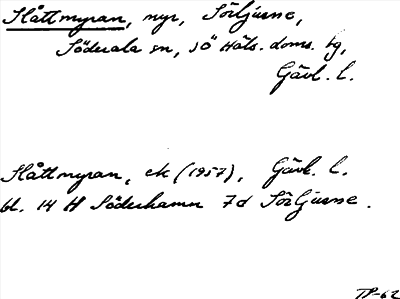 Slåttmyran, myr, Sörljusne,
Söderala sn, SÖ Häls. doms. tg,
Gävl. l.
Slåttmyran, ek (1957), Gävl. l.
bl. 14 H Söderhamn 7d Sörljusne.
TP-62